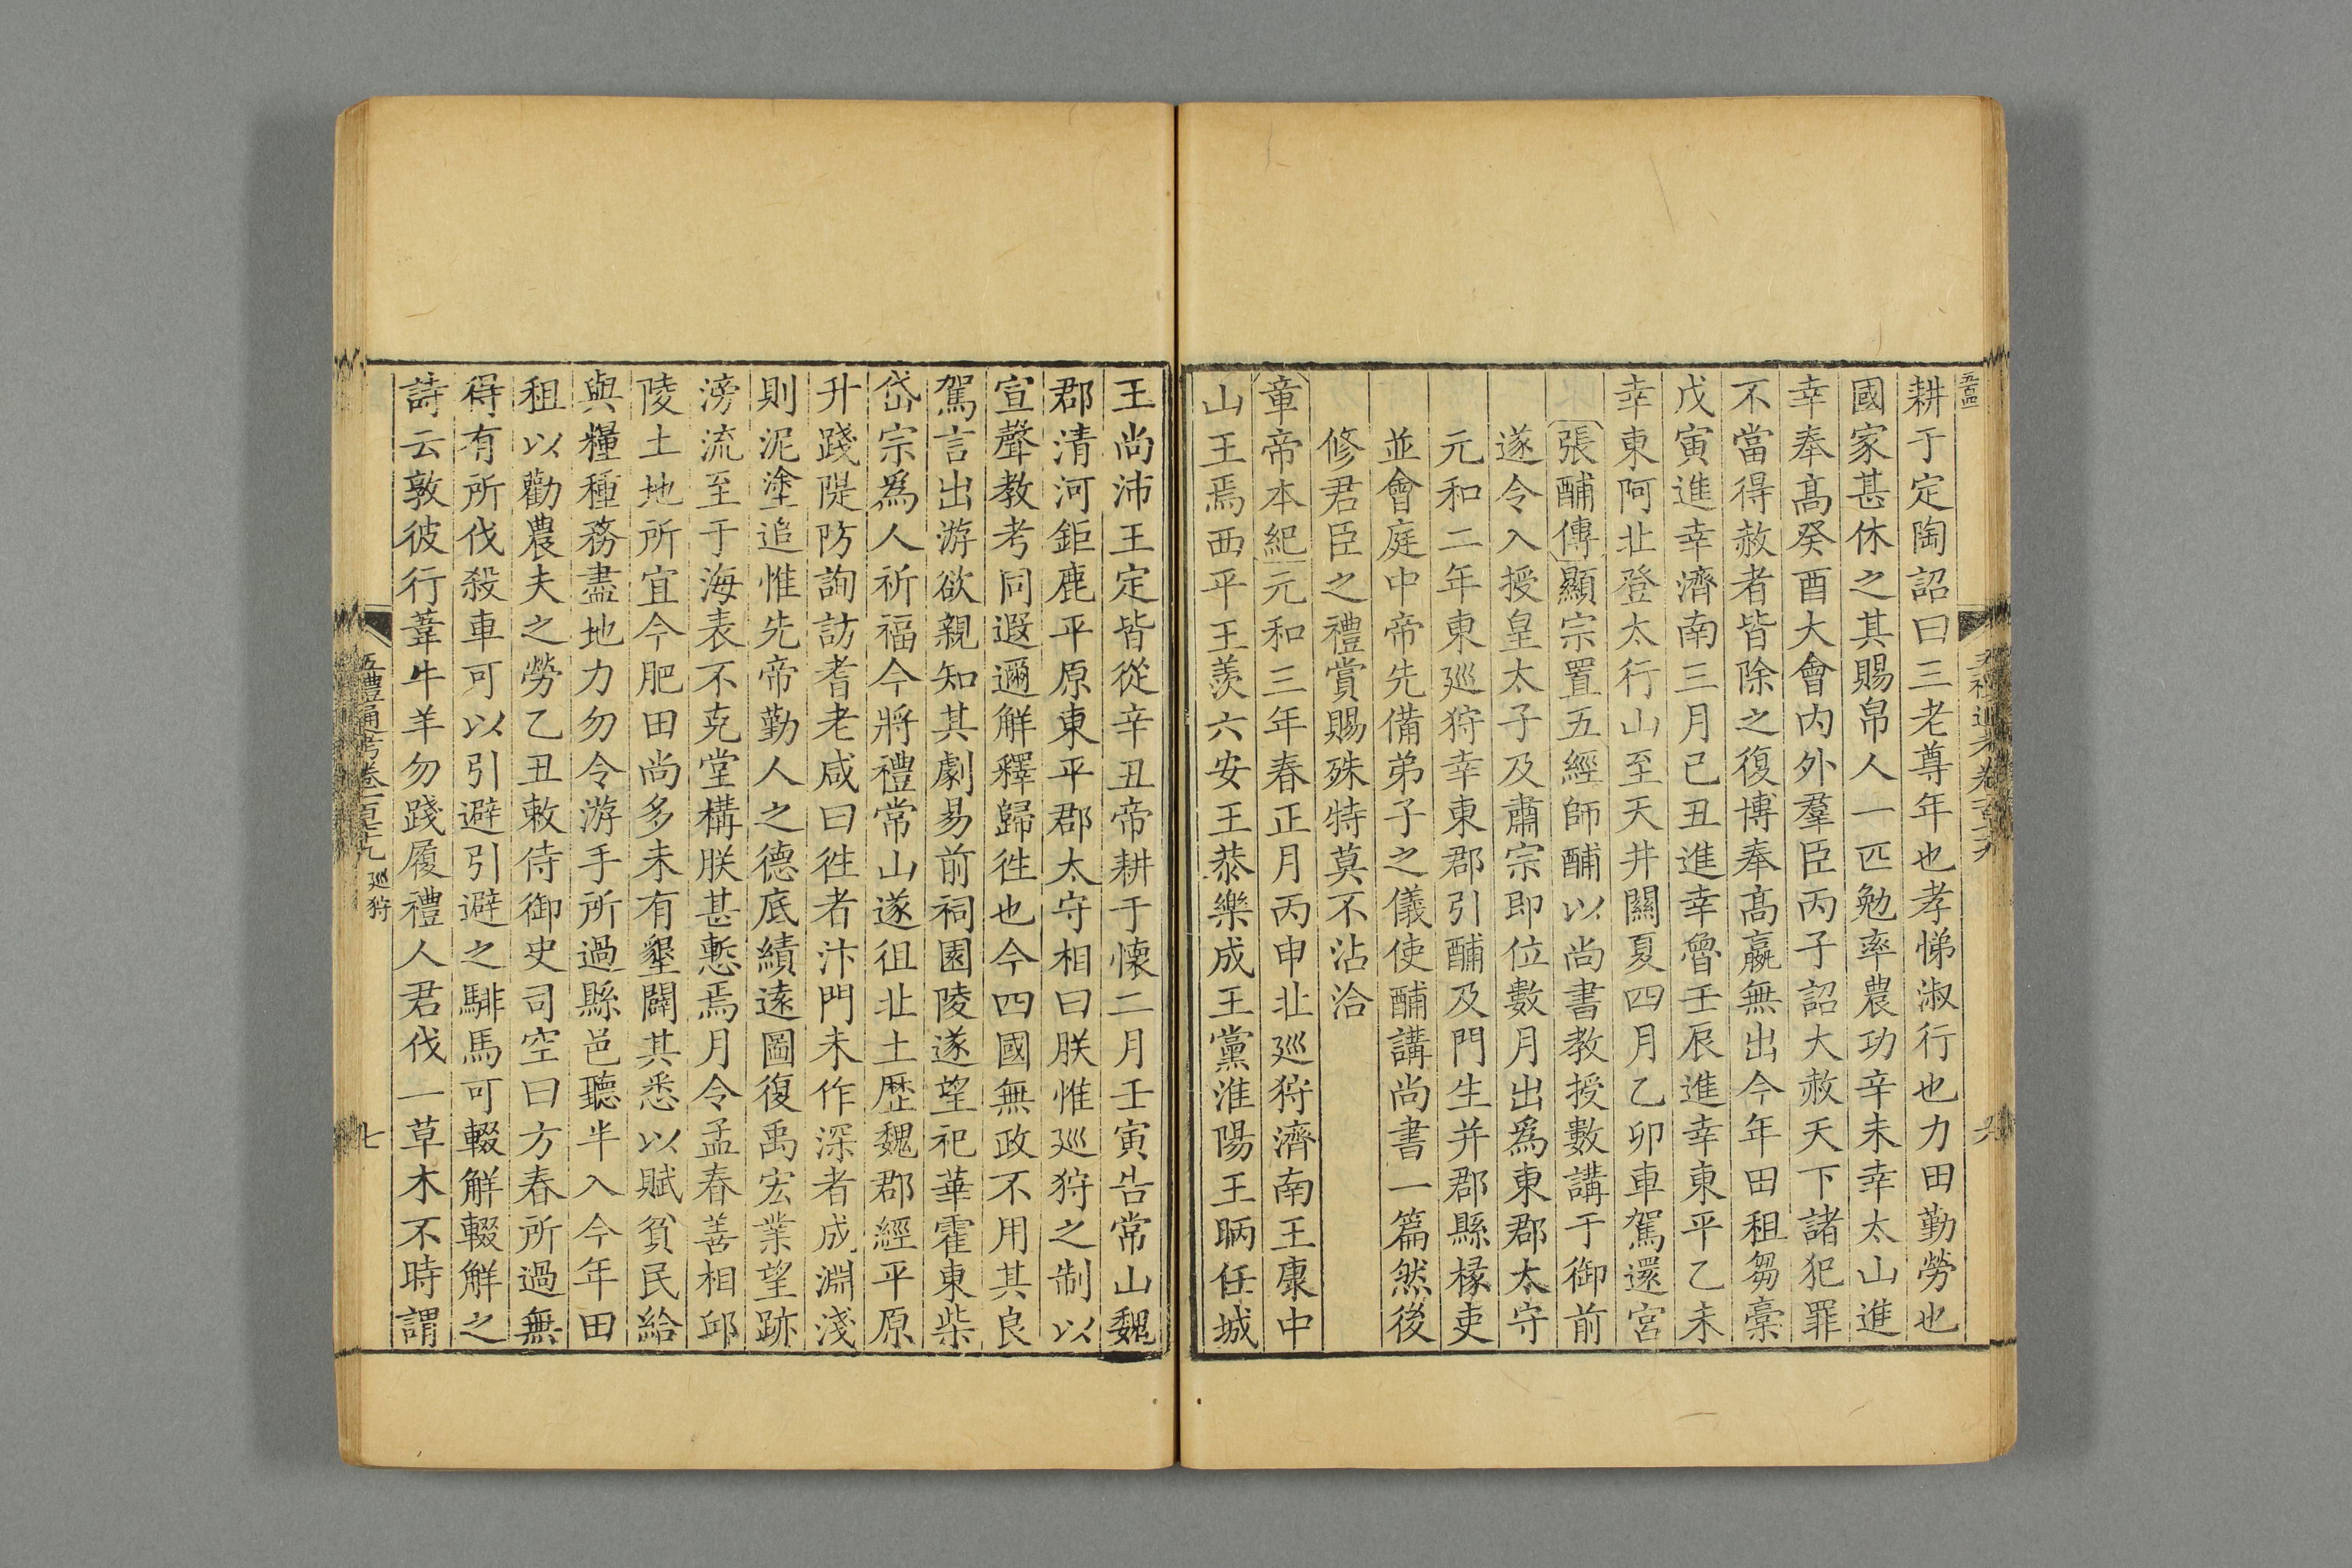 耕于定陶詔曰三老尊年也孝悌淑行也力田勤勞也
國家甚休之其賜帛人一匹勉率農功辛未幸太山進
幸奉高癸酉大會內外羣臣丙子詔大赦天下諸犯罪
不當得赦者皆除之復博奉高嬴無出今年田租芻稾
戊寅進幸濟南三月己丑進幸魯壬辰進幸東平乙未
幸東阿北登太行山至天井關夏四月乙卯車駕還宮
張酺傳顯宗置五經師酺以尚書教授數講于御前
遂令入授皇太子及肅宗即位數月出為東郡太守
元和二年東廵狩幸東郡引酺及門生并郡縣掾吏
並會庭中帝先備弟子之儀使酺講尚書一篇然後
修君臣之禮賞賜殊特莫不沾洽
章帝本紀元和三年春正月丙申北廵狩濟南王康中
山王焉西平王羨六安王恭樂成王黨淮陽王昞任城
王尚沛王定皆從辛丑帝耕于懷二月壬寅告常山魏
郡清河鉅鹿平原東平郡太守相曰朕惟廵狩之制以
宣聲教考同遐邇解釋歸徃也今四國無政不用其良
駕言出游欲親知其劇易前祠園陵遂望祀華霍東柴
岱宗為人祈福今將禮常山遂徂北土歷魏郡經平原
升踐隄防詢訪耆老咸曰徃者汴門未作深者成淵淺
則泥塗追惟先帝勤人之德底績遠圖復禹宏業望跡
滂流至于海表不克堂構朕甚慙焉月令孟春善相邱
陵土地所宜今肥田尚多未有墾闢其悉以賦貧民給
與糧種務盡地力勿令游手所過縣邑聽半入今年田
租以勸農夫之勞乙丑敕侍御史司空曰方春所過無
得有所伐殺車可以引避引避之騑馬可輟解輟解之
詩云敦彼行葦牛羊勿踐履禮人君伐一草木不時謂
五禮通考卷一百七十九 廵狩
七